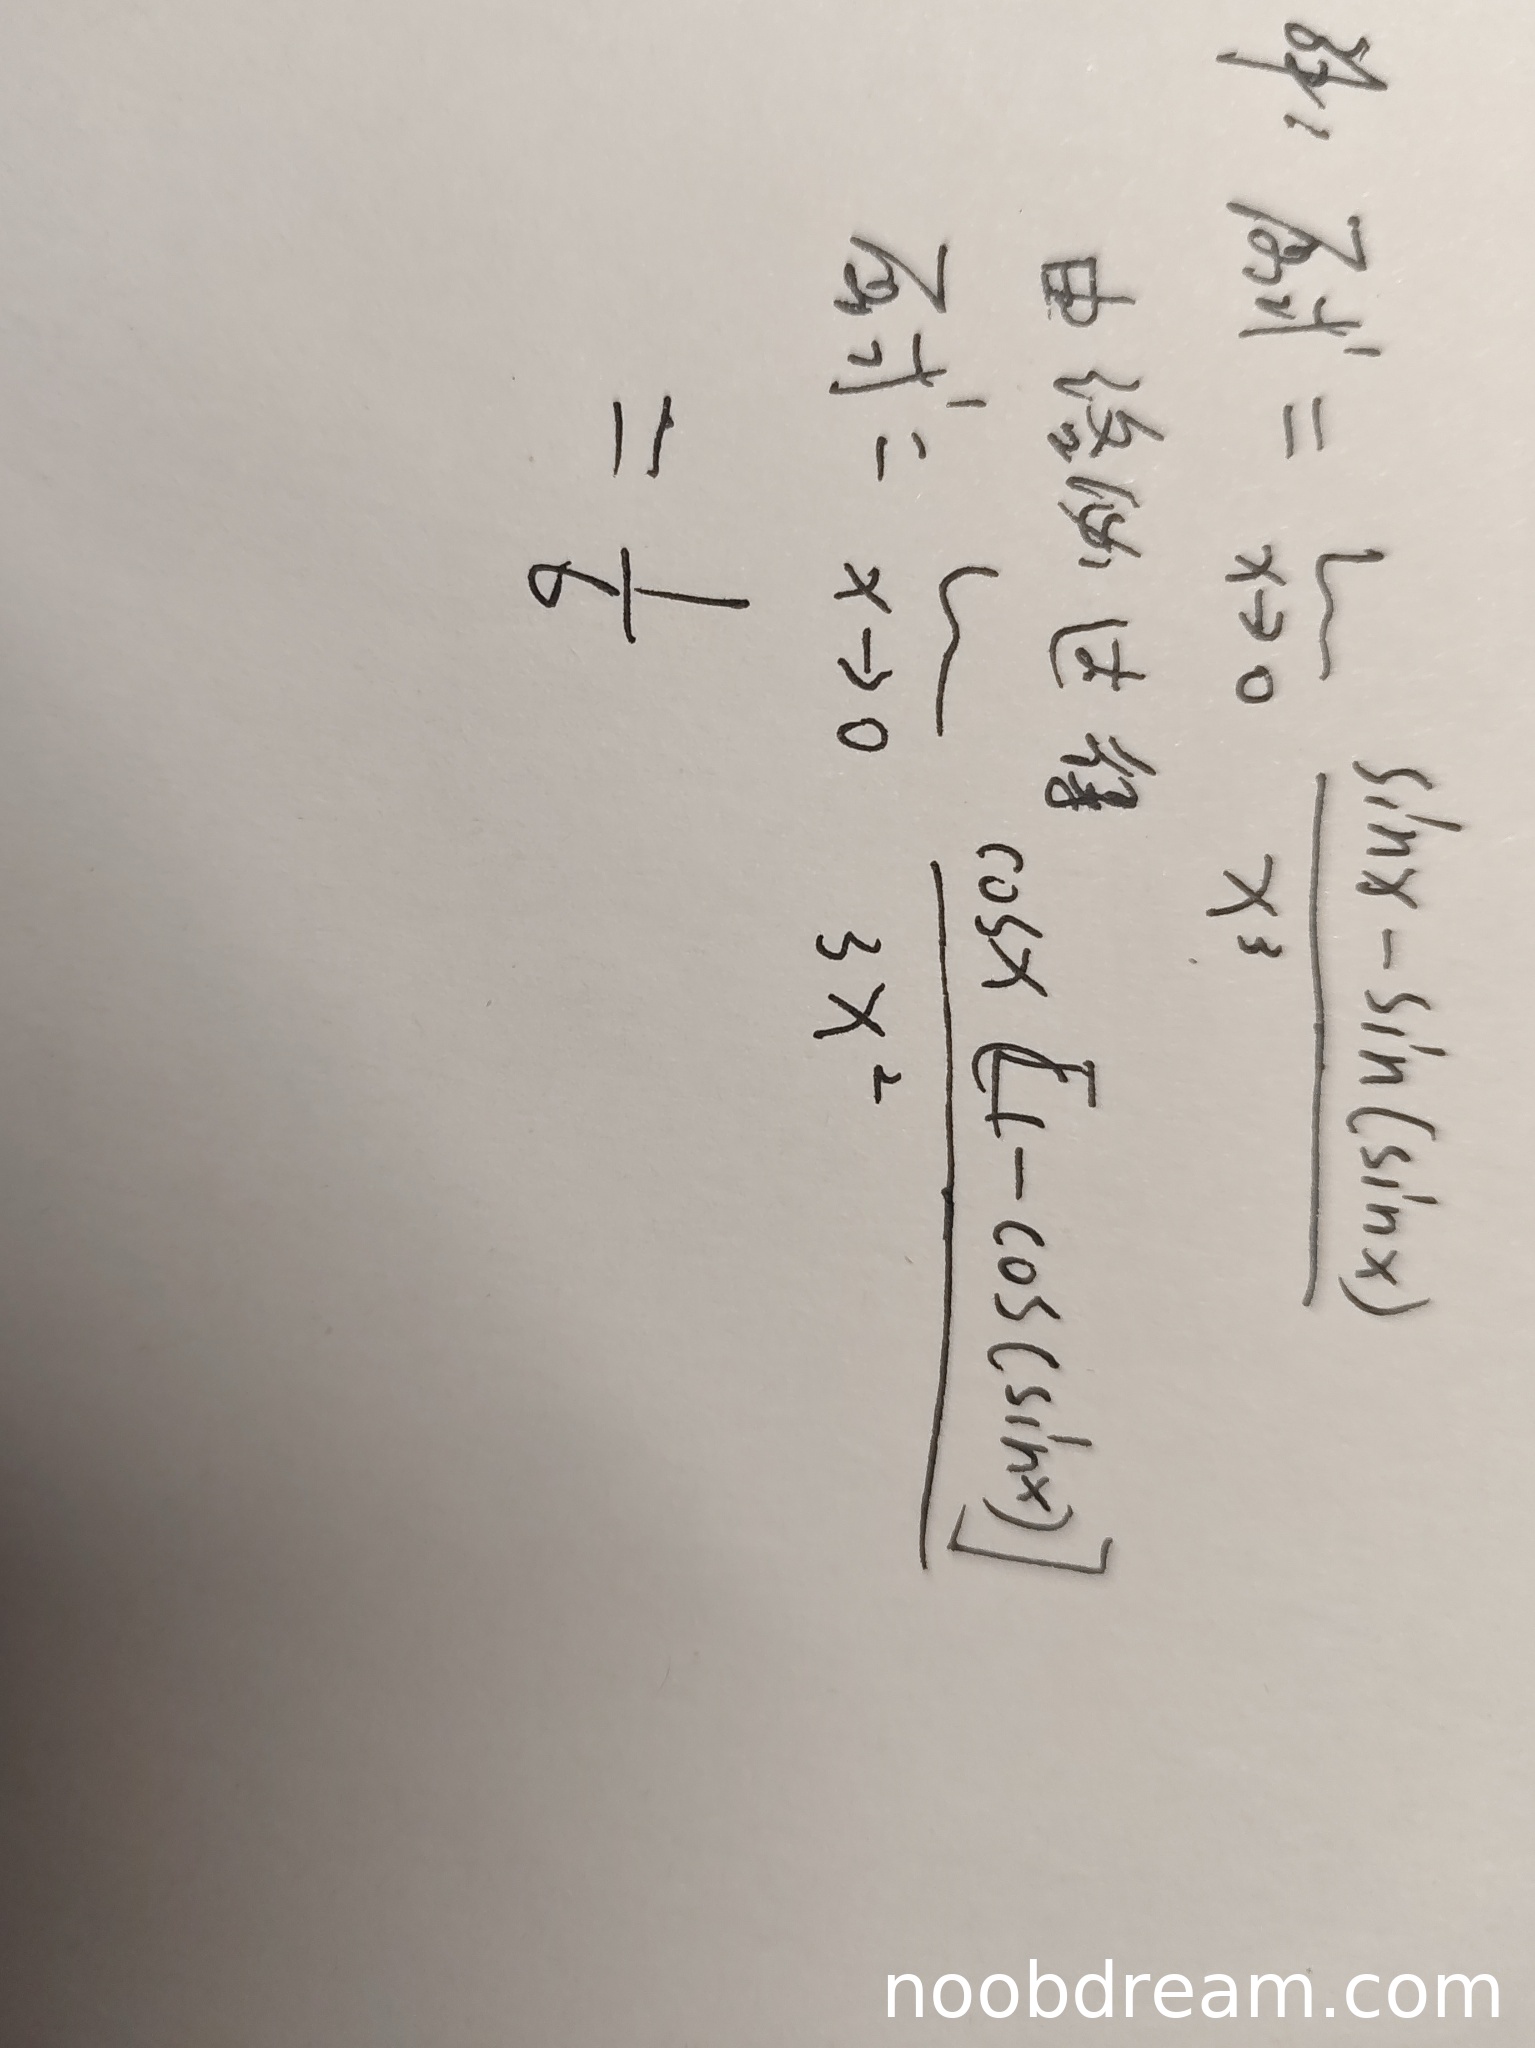 解: 原式 = lim x→0 (sinx - sin(sinx)) / x³
由洛必达得
原式 = lim x→0 cosx [1 - cos(sinx)] / 3x²
= 1/6
noobdream.com